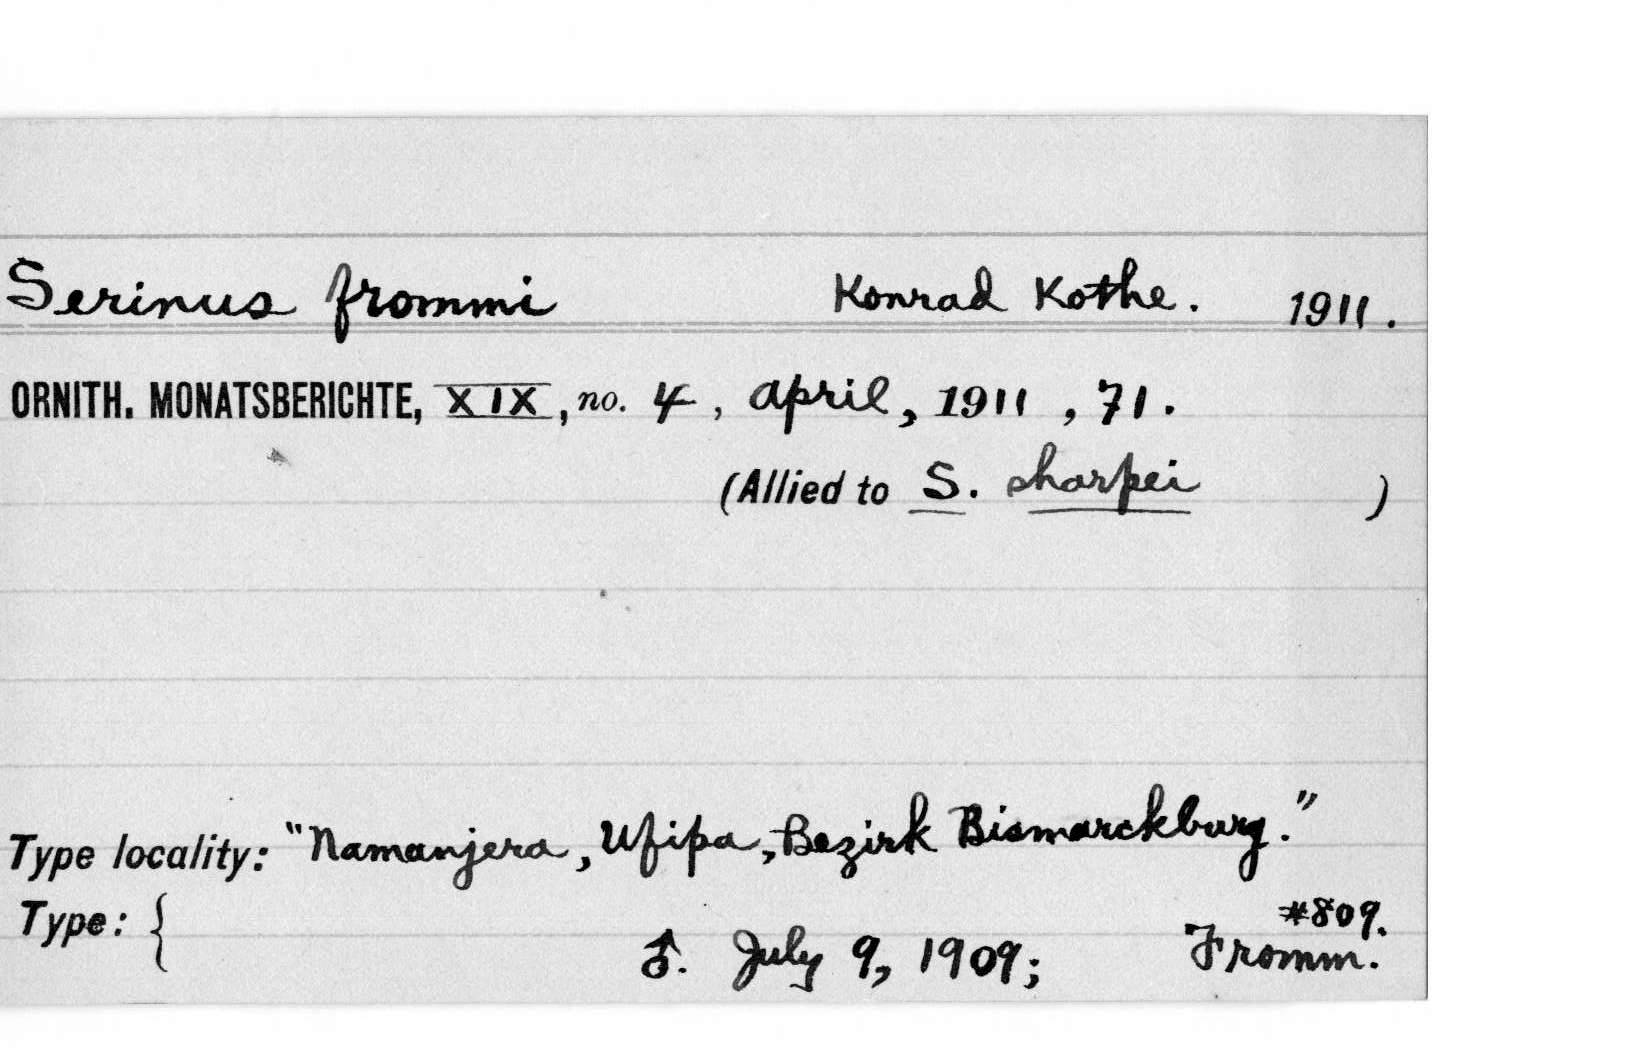 Serinus frommi Konrad Kothe. 1911.
ORNITH. MONATSBERICHTE, XIX, no. 4, April, 1911, 71.
(Allied to S. sharpei )
Type locality: "Namanjera, Ufipa, Bezirk Bismarckburg."
Type: { #809.
♂. July 9, 1909; Fromm.